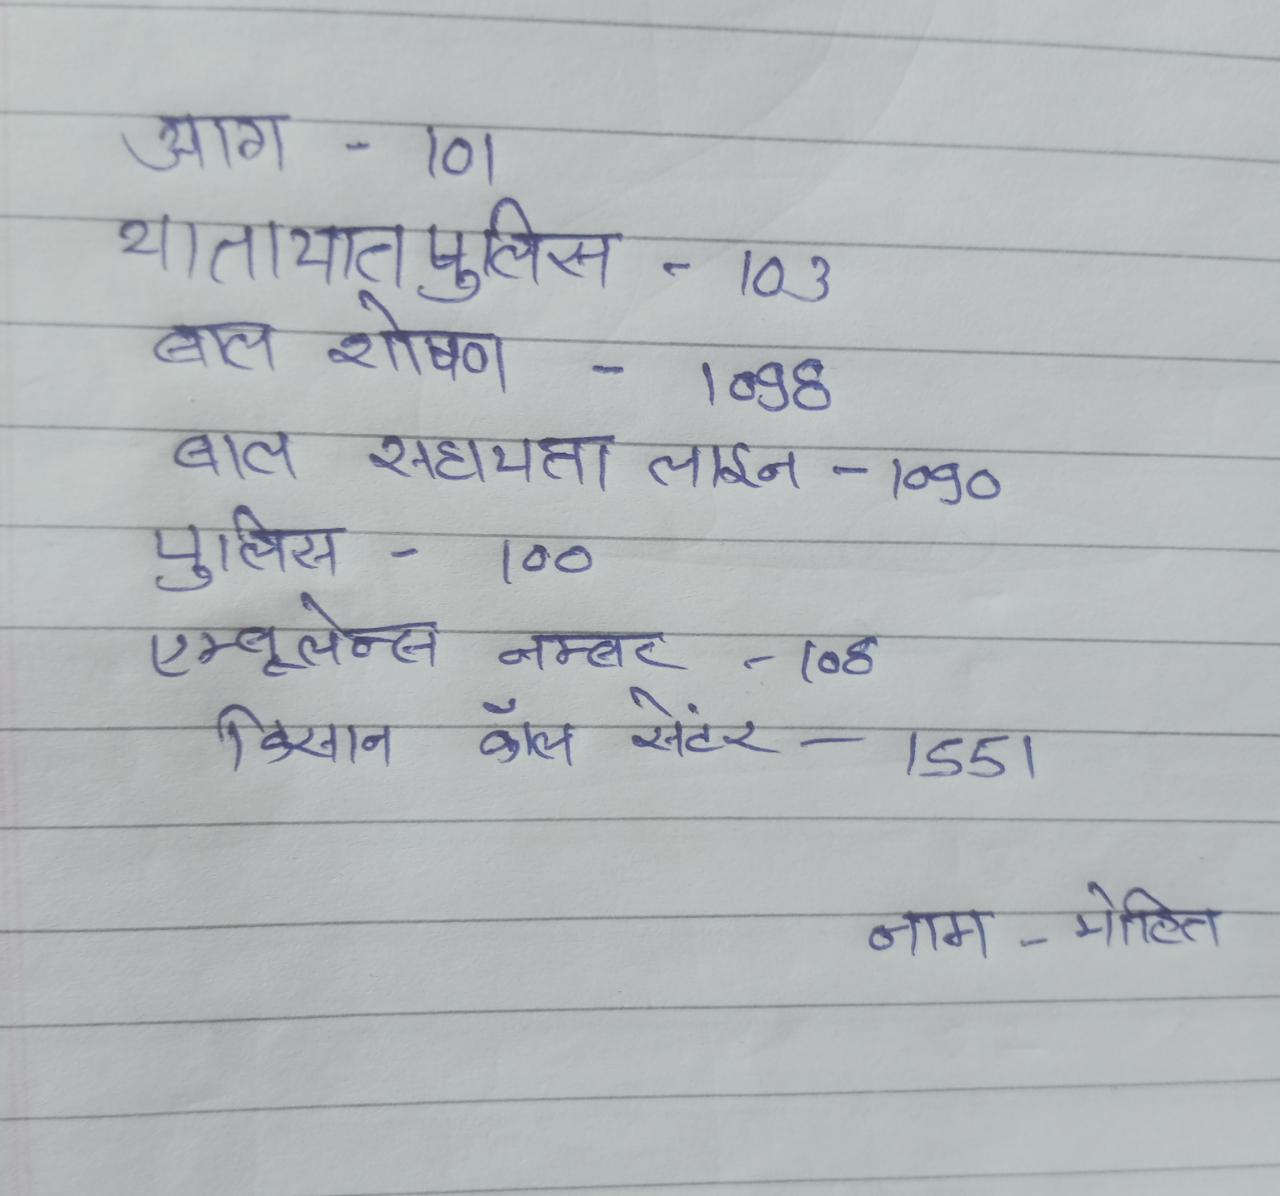 आग - 101
यातायात पुलिस - 103
बाल शोषण - 1098
बाल सहायता लाइन - 1090
पुलिस - 100
एम्बूलेन्स नम्बर - 108
किसान कॉल सेटंर - 1551
नाम - मोहित